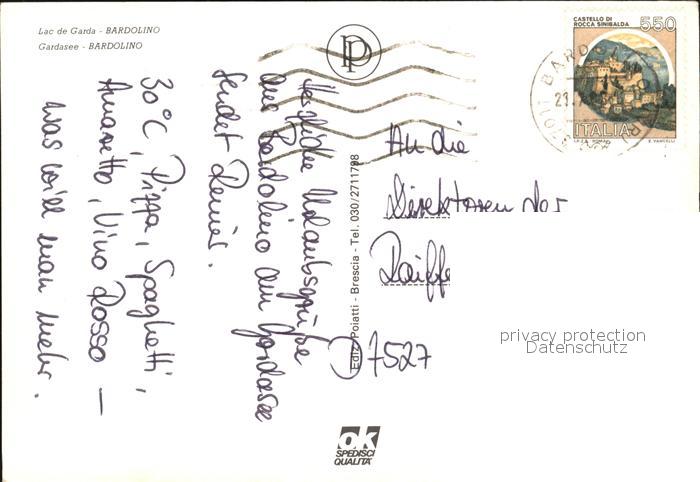 Lac de Garda - BARDOLINO
Gardasee - BARDOLINO
PP
CASTELLO DI
ROCCA SINIBALDA
550
ITALIA
I.P.Z.S. ROMA
E. VANGELLI
BARDOLINO
Herzliche Urlaubsgrüße
aus Bardolino am Gardasee
sendet
30°C, Pizza, Spaghetti,
Amaretto, Vino Rosso —
was will man mehr.
Ediz. Poiatti - Brescia - Tel. 030/2711798
An die
Direktoren der
Raiffe
D 7527
privacy protection
Datenschutz
ok
SPEDISCI
QUALITÀ